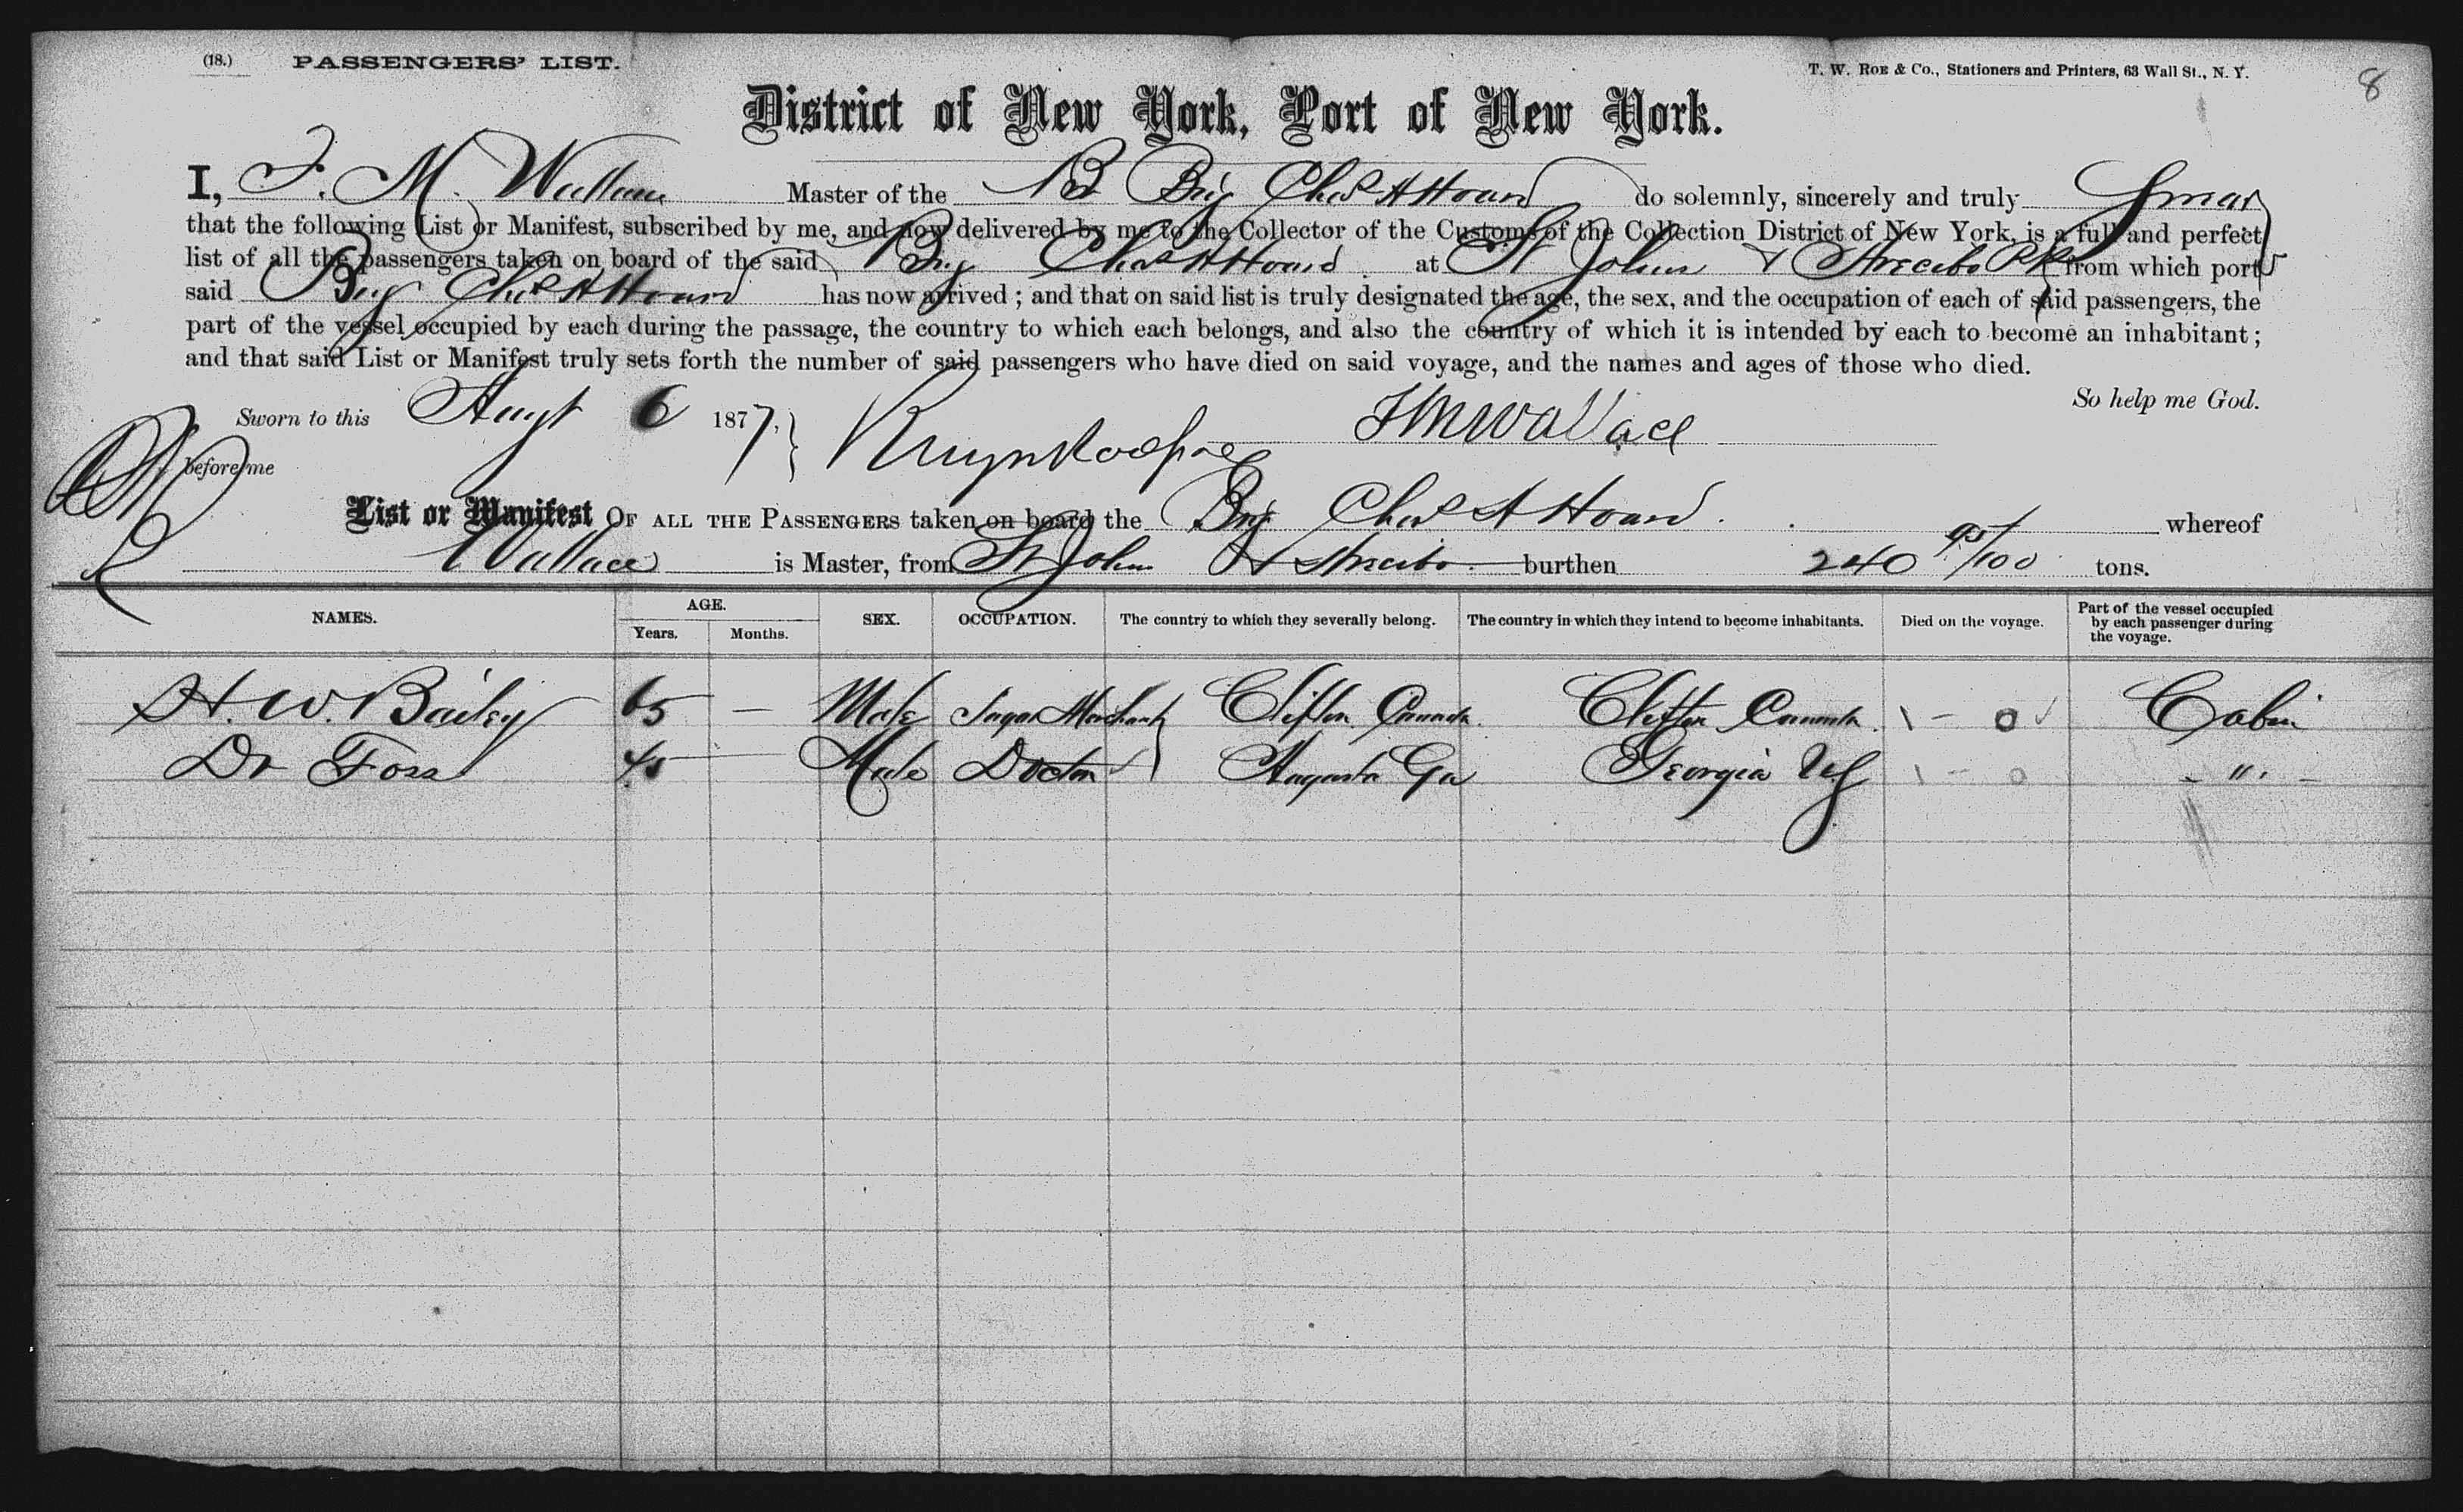 (18.) PASSENGERS' LIST.
T. W. ROE & Co., Stationers and Printers, 63 Wall St., N. Y.
8
District of New York, Port of New York.
I, F. M. Wallace Master of the Br Brig Chas A Hoard do solemnly, sincerely and truly Swear
that the following List or Manifest, subscribed by me, and now delivered by me to the Collector of the Customs of the Collection District of New York, is a full and perfect
list of all the passengers taken on board of the said Brig Chas A Hoard at St Johns & Arecibo PR from which ports
said Brig Chas A Hoard has now arrived ; and that on said list is truly designated the age, the sex, and the occupation of each of said passengers, the
part of the vessel occupied by each during the passage, the country to which each belongs, and also the country of which it is intended by each to become an inhabitant ;
and that said List or Manifest truly sets forth the number of said passengers who have died on said voyage, and the names and ages of those who died.
So help me God.
Sworn to this Augt 6 1877, } F M Wallace
before me
List or Manifest OF ALL THE PASSENGERS taken on board the Brig Chas A Hoard. whereof
Wallace is Master, from St Johns & Arecibo burthen 240 95/100 tons.
NAMES. AGE. Years. Months. SEX. OCCUPATION. The country to which they severally belong. The country in which they intend to become inhabitants. Died on the voyage. Part of the vessel occupied by each passenger during the voyage.
H. W. Bailey 65 — Male Sugar Merchant Clifton Canada. Clifton Canada \ - 0 ✓ Cabin
Dr Foss 45 — Male Doctor Augusta Ga Georgia US \ - 0 - " -